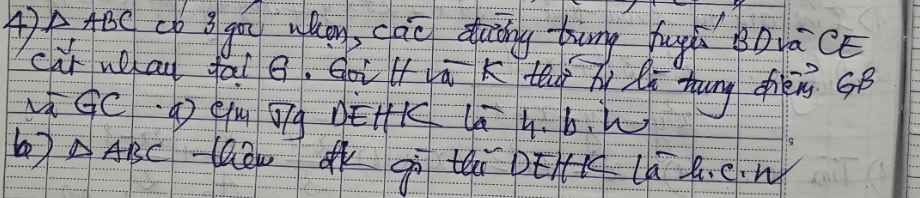 4) Δ ABC có 3 góc nhọn, các đường trung tuyến BD và CE
cắt nhau tại G. Gọi H và K theo tự là trung điểm GB
và GC. a) c/m T/g DEHK là h.b.h
b) Δ ABC thêm đk gì thì DEHK là h.c.n